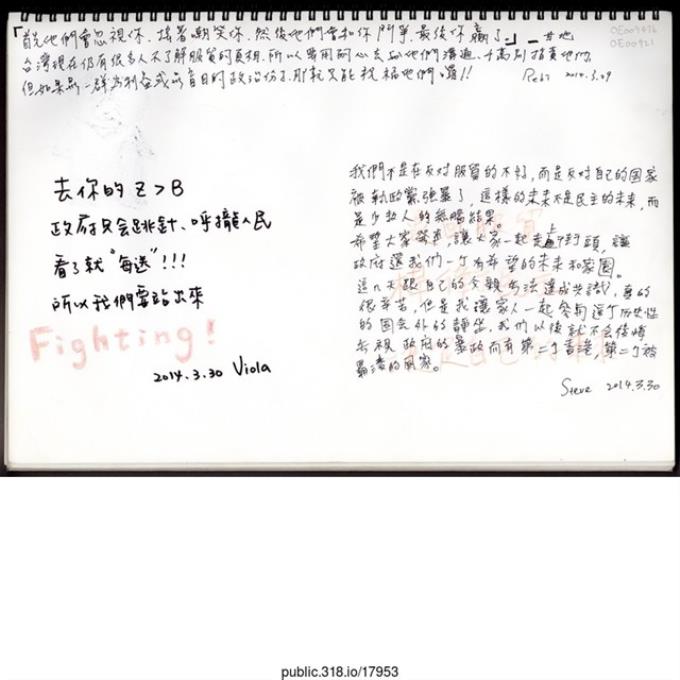 「首先他們會忽視你、接著嘲笑你、然後他們會和你鬥爭,最後你贏了。」 — 甘地
OE007676
OE00921
台灣現在仍有很多人不了解服貿的真相,所以要用耐心去和他們溝通、千萬別指責他們。
但如果是一群為利益或 盲目的政治份子,那就只能祝福他們囉!!
2014.3.29
去你的 Z > B
政府只會跳針、呼攏人民
看了就 "每送" !!!
所以我們要站出來
Fighting!
2014.3.30 Viola
我們不是在反對服貿的不好,而是反對自己的國家
被執政黨強暴了,這樣的未來不是民主的未來,而
是少數人的 結果。
希望大家 ,讓大家一起走上 街頭,讓
政府還我們一个有希望的未來和家園。
這几天跟自己的 達成共識,真的
很辛苦,但是我讓家人一起參與這个历史性
的国会外的靜坐,我們以後就不会後悔
忽視政府的暴政而有第二个香港,第二个被
的國家。
Steve 2014.3.30
public.318.io/17953